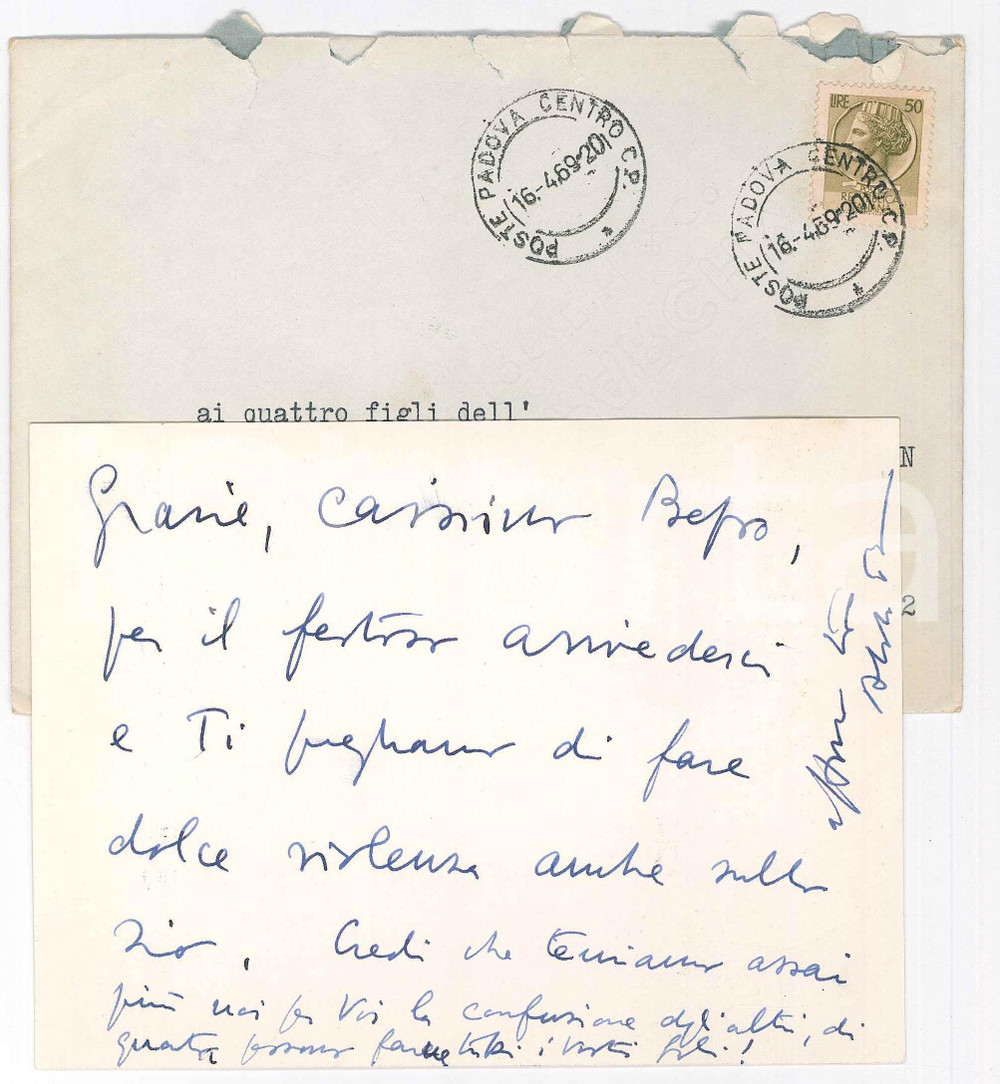 POSTE PADOVA CENTRO C.P.
16.-4.69-20
LIRE 50
POSTE PADOVA CENTRO C.P.
16.-4.69-20
ai quattro figli dell'
N
2
Grazie, carissimo Beppo,
per il festoso arrivederci
e Ti preghiamo di fare
dolce violenza anche sullo
zio. Credi che temiamo assai
più noi per Voi la confusione degli altri, di
quanta possono farne tutti i vostri figli!